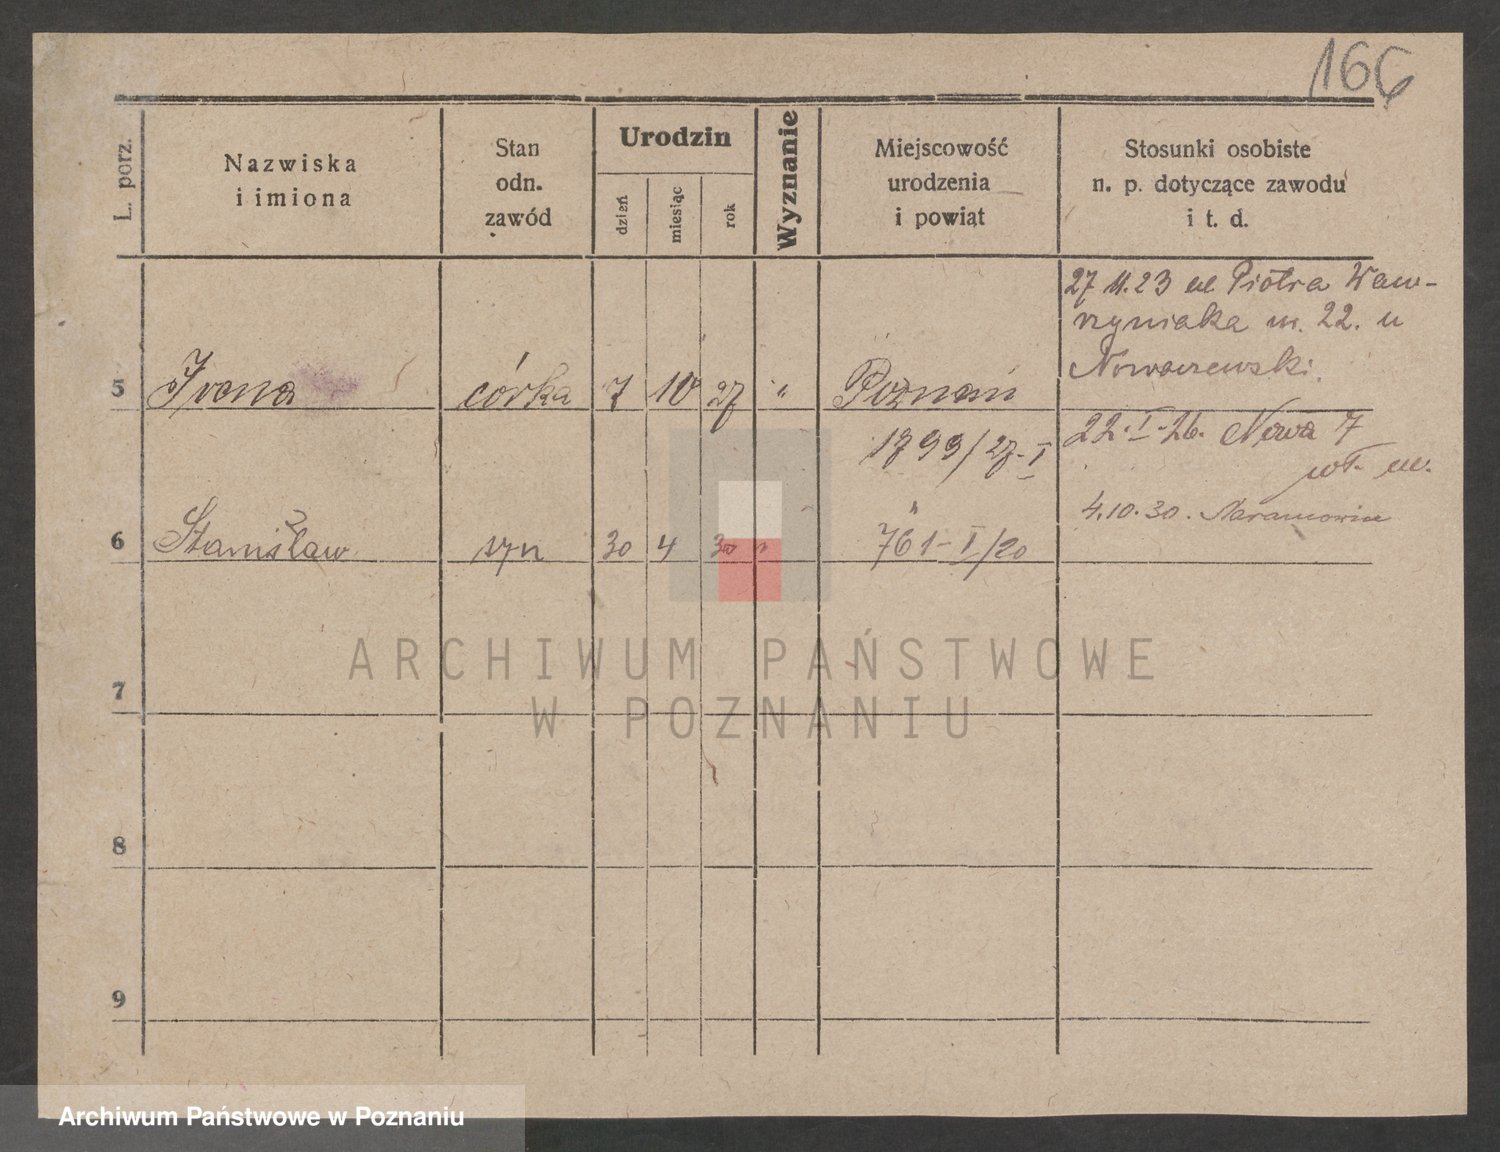 166
L. porz.
Nazwiska
i imiona
Stan
odn.
zawód
Urodzin
dzień
miesiąc
rok
Wyznanie
Miejscowość
urodzenia
i powiąt
Stosunki osobiste
n. p. dotyczące zawodu
i t. d.
27 11.23 ul Piotra Waw-
rzyniaka m. 22. u
Nowaczewski.
5 Irena córka 7 10 27 " Poznań
1799/27-I
22.I.26. Nowa 7
wł. m.
4.10.30. Naramowice
6 Stanisław syn 30 4 30 " "
761-I/20
7
8
9
ARCHIWUM PAŃSTWOWE
W POZNANIU
Archiwum Państwowe w Poznaniu